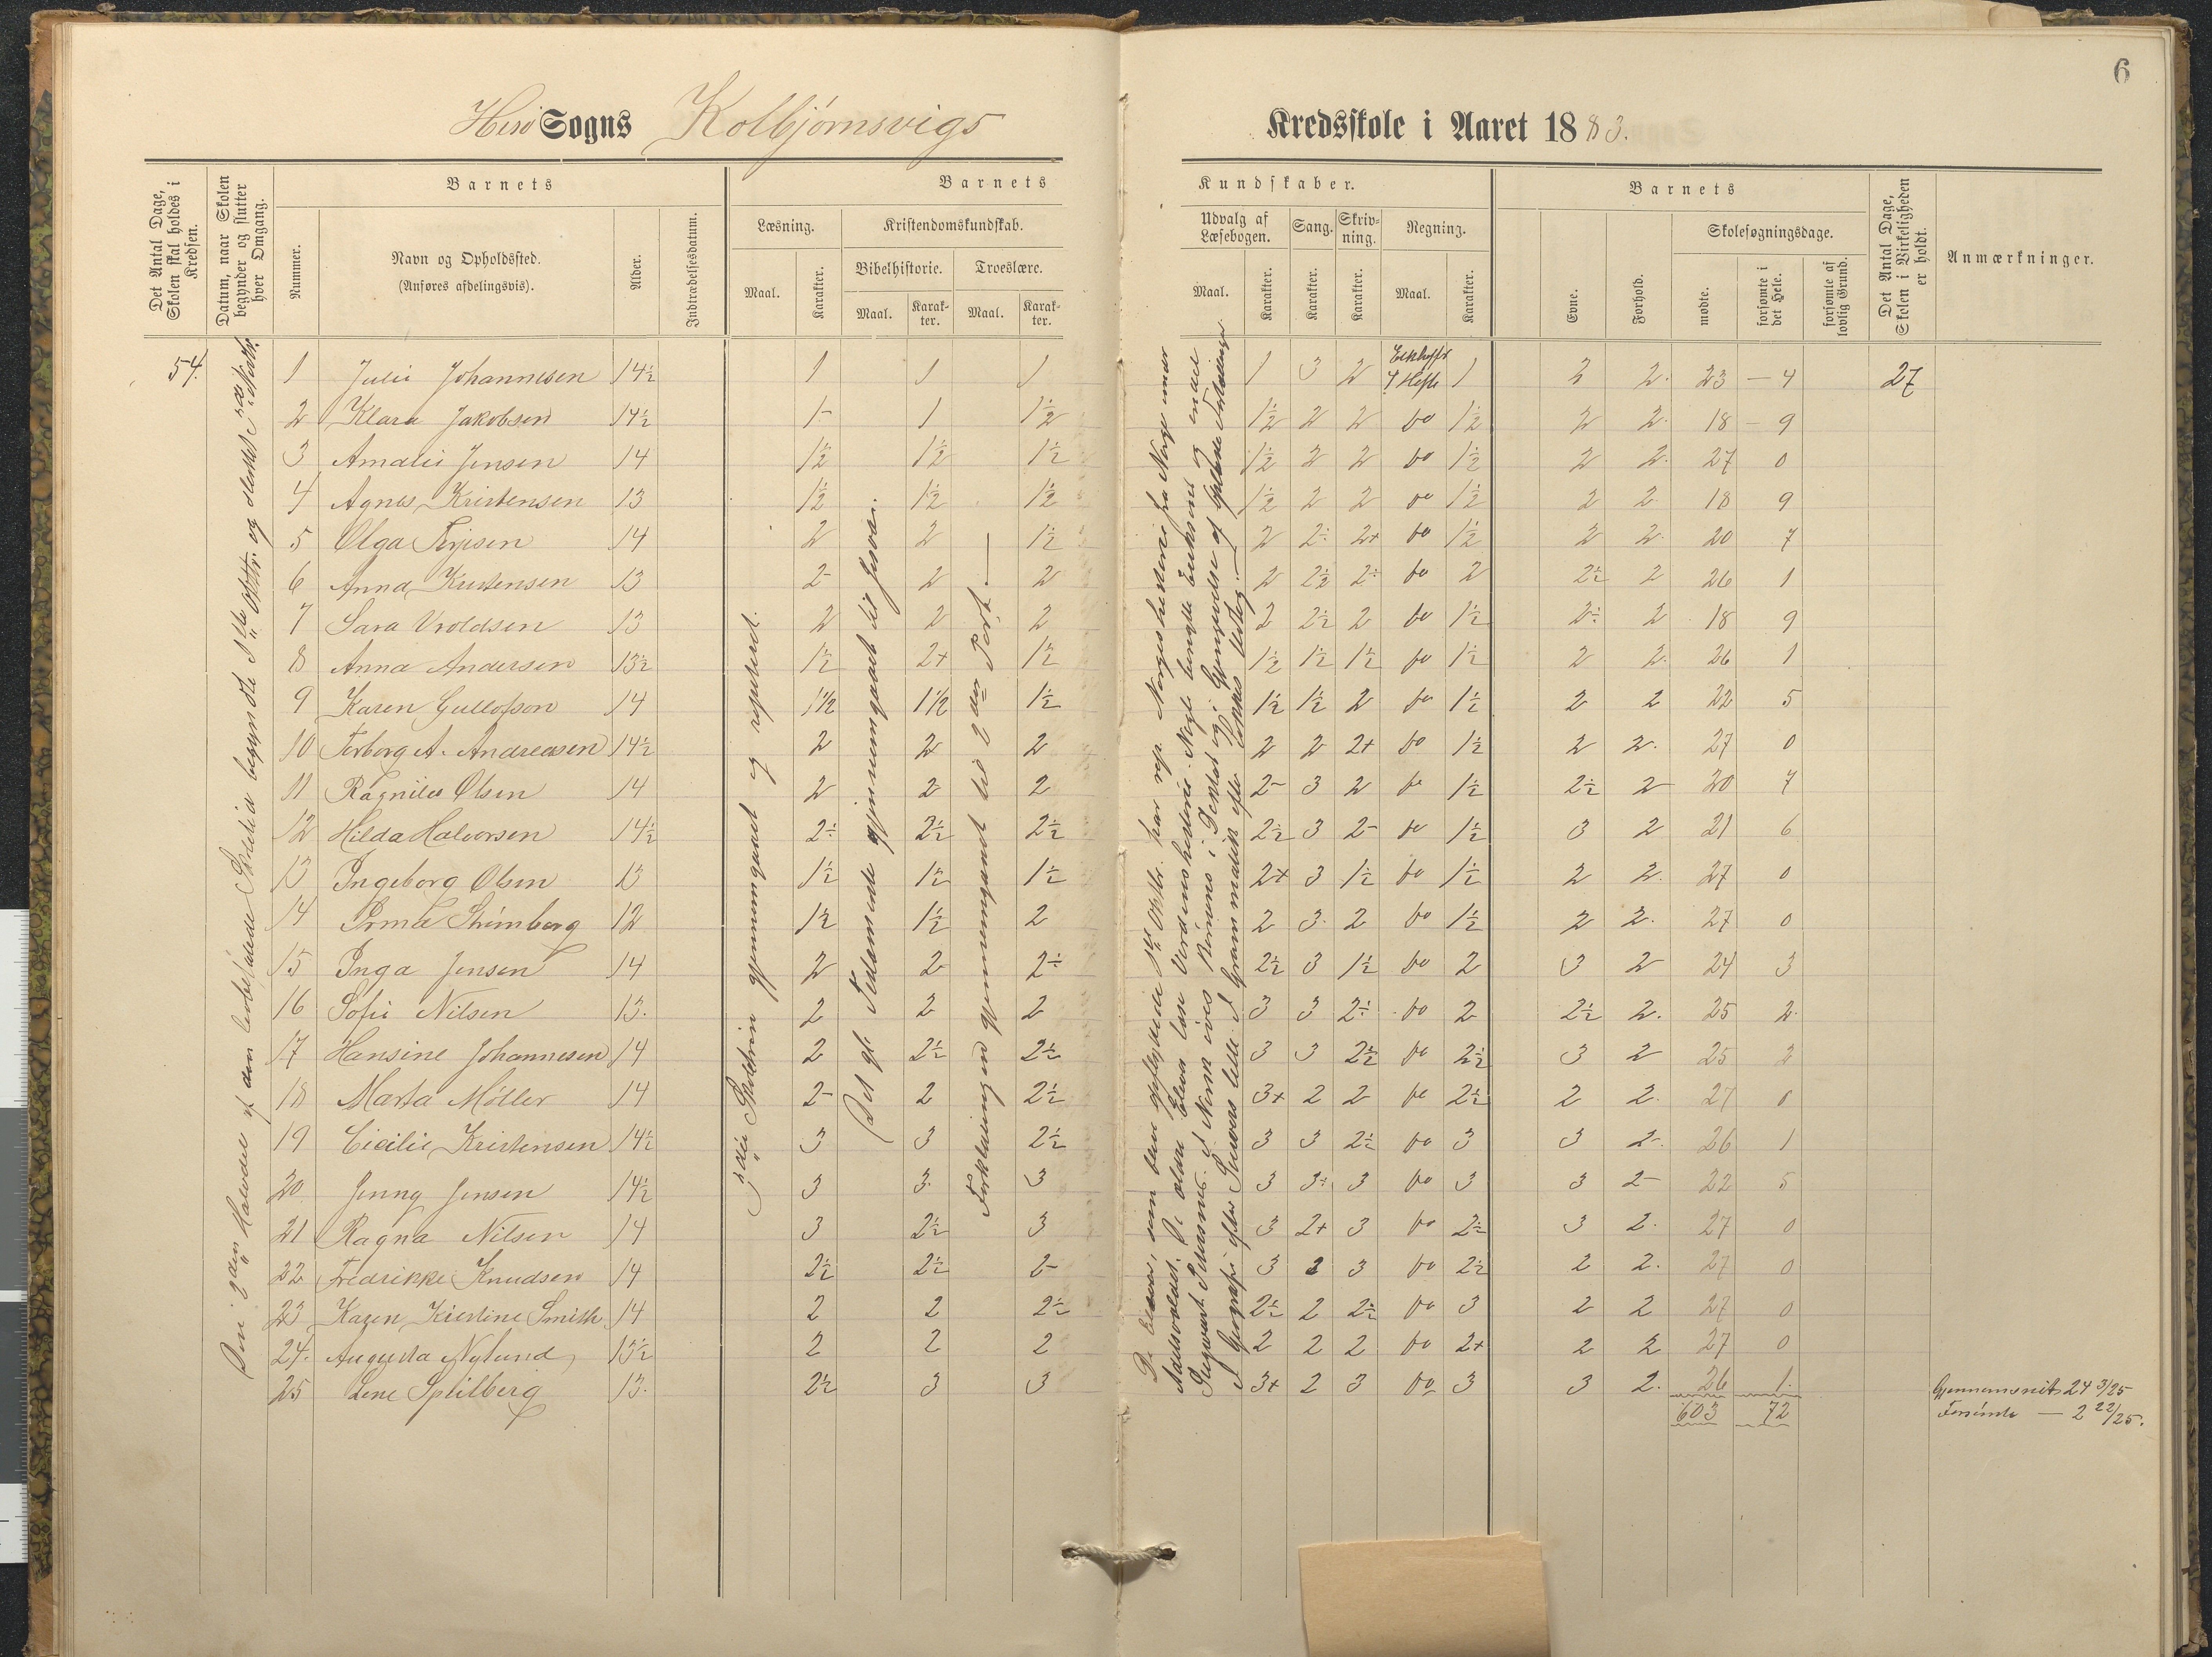 6
Hisø Sogns Kolbjørnsvigs Kredsskole i Aaret 1883.
Det Antal Dage, Skolen skal holdes i Kredsen.
Datum, naar Skolen begynder og slutter hver Omgang.
Barnets
Nummer.
Navn og Opholdssted.
(Anføres afdelingsvis).
Alder.
Indtrædelsesdatum.
Barnets Kundskaber.
Læsning.
Maal.
Karakter.
Kristendomskundskab.
Bibelhistorie.
Maal.
Karakter.
Troeslære.
Maal.
Karakter.
Udvalg af Læsebogen.
Maal.
Karakter.
Sang.
Karakter.
Skrivning.
Karakter.
Regning.
Maal.
Karakter.
Barnets
Evne.
Forhold.
Skolesøgningsdage.
mødte.
forsømte i det Hele.
forsømte af lovlig Grund.
Det Antal Dage, Skolen i Virkeligheden er holdt.
Anmærkninger.
54.
1 Julie Johannesen 14½ 1 1 1 1 3 2 4 Hefte 1 2 2. 23 – 4 27
2 Klara Jakobsen 14½ 1- 1 1½ 1½ 2 2 do 1½ 2 2. 18 – 9
3 Amalie Jensen 14 1½ 1½ 1½ 1½ 2 2 do 1½ 2 2. 27 0
4 Agnes Kristensen 13 1½ 1½ 1½ 1½ 2 2 do 1½ 2 2. 18 9
5 Olga Terjesen 14 2 2 1½ 2 2÷ 2+ do 1½ 2 2. 20 7
6 Anna Kristensen 13 2- 2 2 2 2½ 2÷ do 2 2½ 2 26 1
7 Sara Vroldsen 13 2 2 2 2 2½ 2 do 1½ 2÷ 2 18 9
8 Anna Andersen 13½ 1½ 2+ 1½ 1½ 1½ 1½ do 1½ 2 2. 26 1
9 Karen Gullofson 14 1½ 1½ 1½ 1½ 1½ 2 do 1½ 2 2 22 5
10 Torborg A. Andreasen 14½ 2 2 2 2 2 2+ do 1½ 2 2. 27 0
11 Ragnild Olsen 14 2 2 2 2- 3 2 do 1½ 2½ 2 20 7
12 Hilda Halvorsen 14½ 2÷ 2½ 2½ 2½ 3 2- do 1½ 3 2 21 6
13 Ingeborg Olsen 13 1½ 1½ 1½ 2+ 3 1½ do 1½ 2 2. 27 0
14 Irma Strømberg 12 1½ 1½ 2 2 3. 2 do 1½ 2 2. 27 0
15 Inga Jensen 14 2 2 2÷ 2½ 3 1½ do 2 3 2 24 3
16 Sofie Nilsen 13. 2 2 2 3 3 2÷ do 2 2½ 2. 25 2.
17 Hansine Johannesen 14 2 2½ 2½ 3 3 2½ do 2½ 3 2 25 2
18 Marta Møller 14 2- 2 2½ 3+ 2 2 do 2½ 2 2. 27 0
19 Cicilie Kristensen 14½ 3 3 2½ 3 3 2½ do 3 3 2- 26 1
20 Jenny Jensen 14½ 3 3. 3 3 3÷ 3 do 3 3 2- 22 5
21 Ragna Nilsen 14 3 2½ 3 3 2+ 3 do 2½ 3 2. 27 0
22 Fredrikke Knudsen 14 2½ 2½ 2- 3 2 3 do 2½ 2 2. 27 0
23 Karen Kirstine Smith 14 2 2 2½ 2½ 2 2½ do 3 2 2 27 0
24. Augusta Nylund 13½ 2 2 2 2 2 2 do 2+ 2 2 27 0
25 Lene Splilberg 13. 2½ 3 3 3+ 2 3 do 3 3 2. 26 1.
603 72
Gjennemsnits 24 3/25
Forsømte — 2 22/25.
3die Skoletrin gjennemgaaet og repeteret.
Det gl. Testamente gjennemgaaet til
Forklaringen gjennemgaaet til 2den Part. —